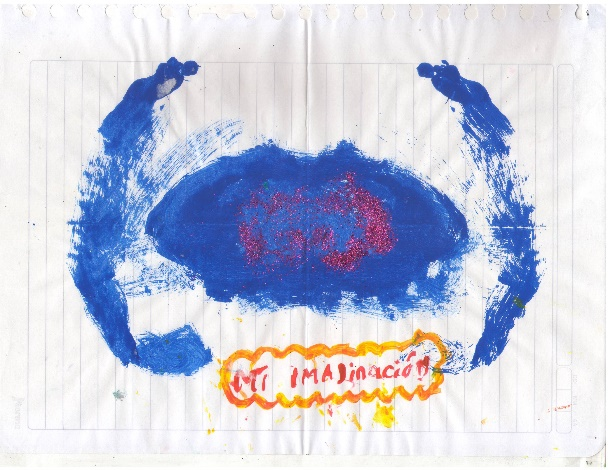 Mi IMAJinación